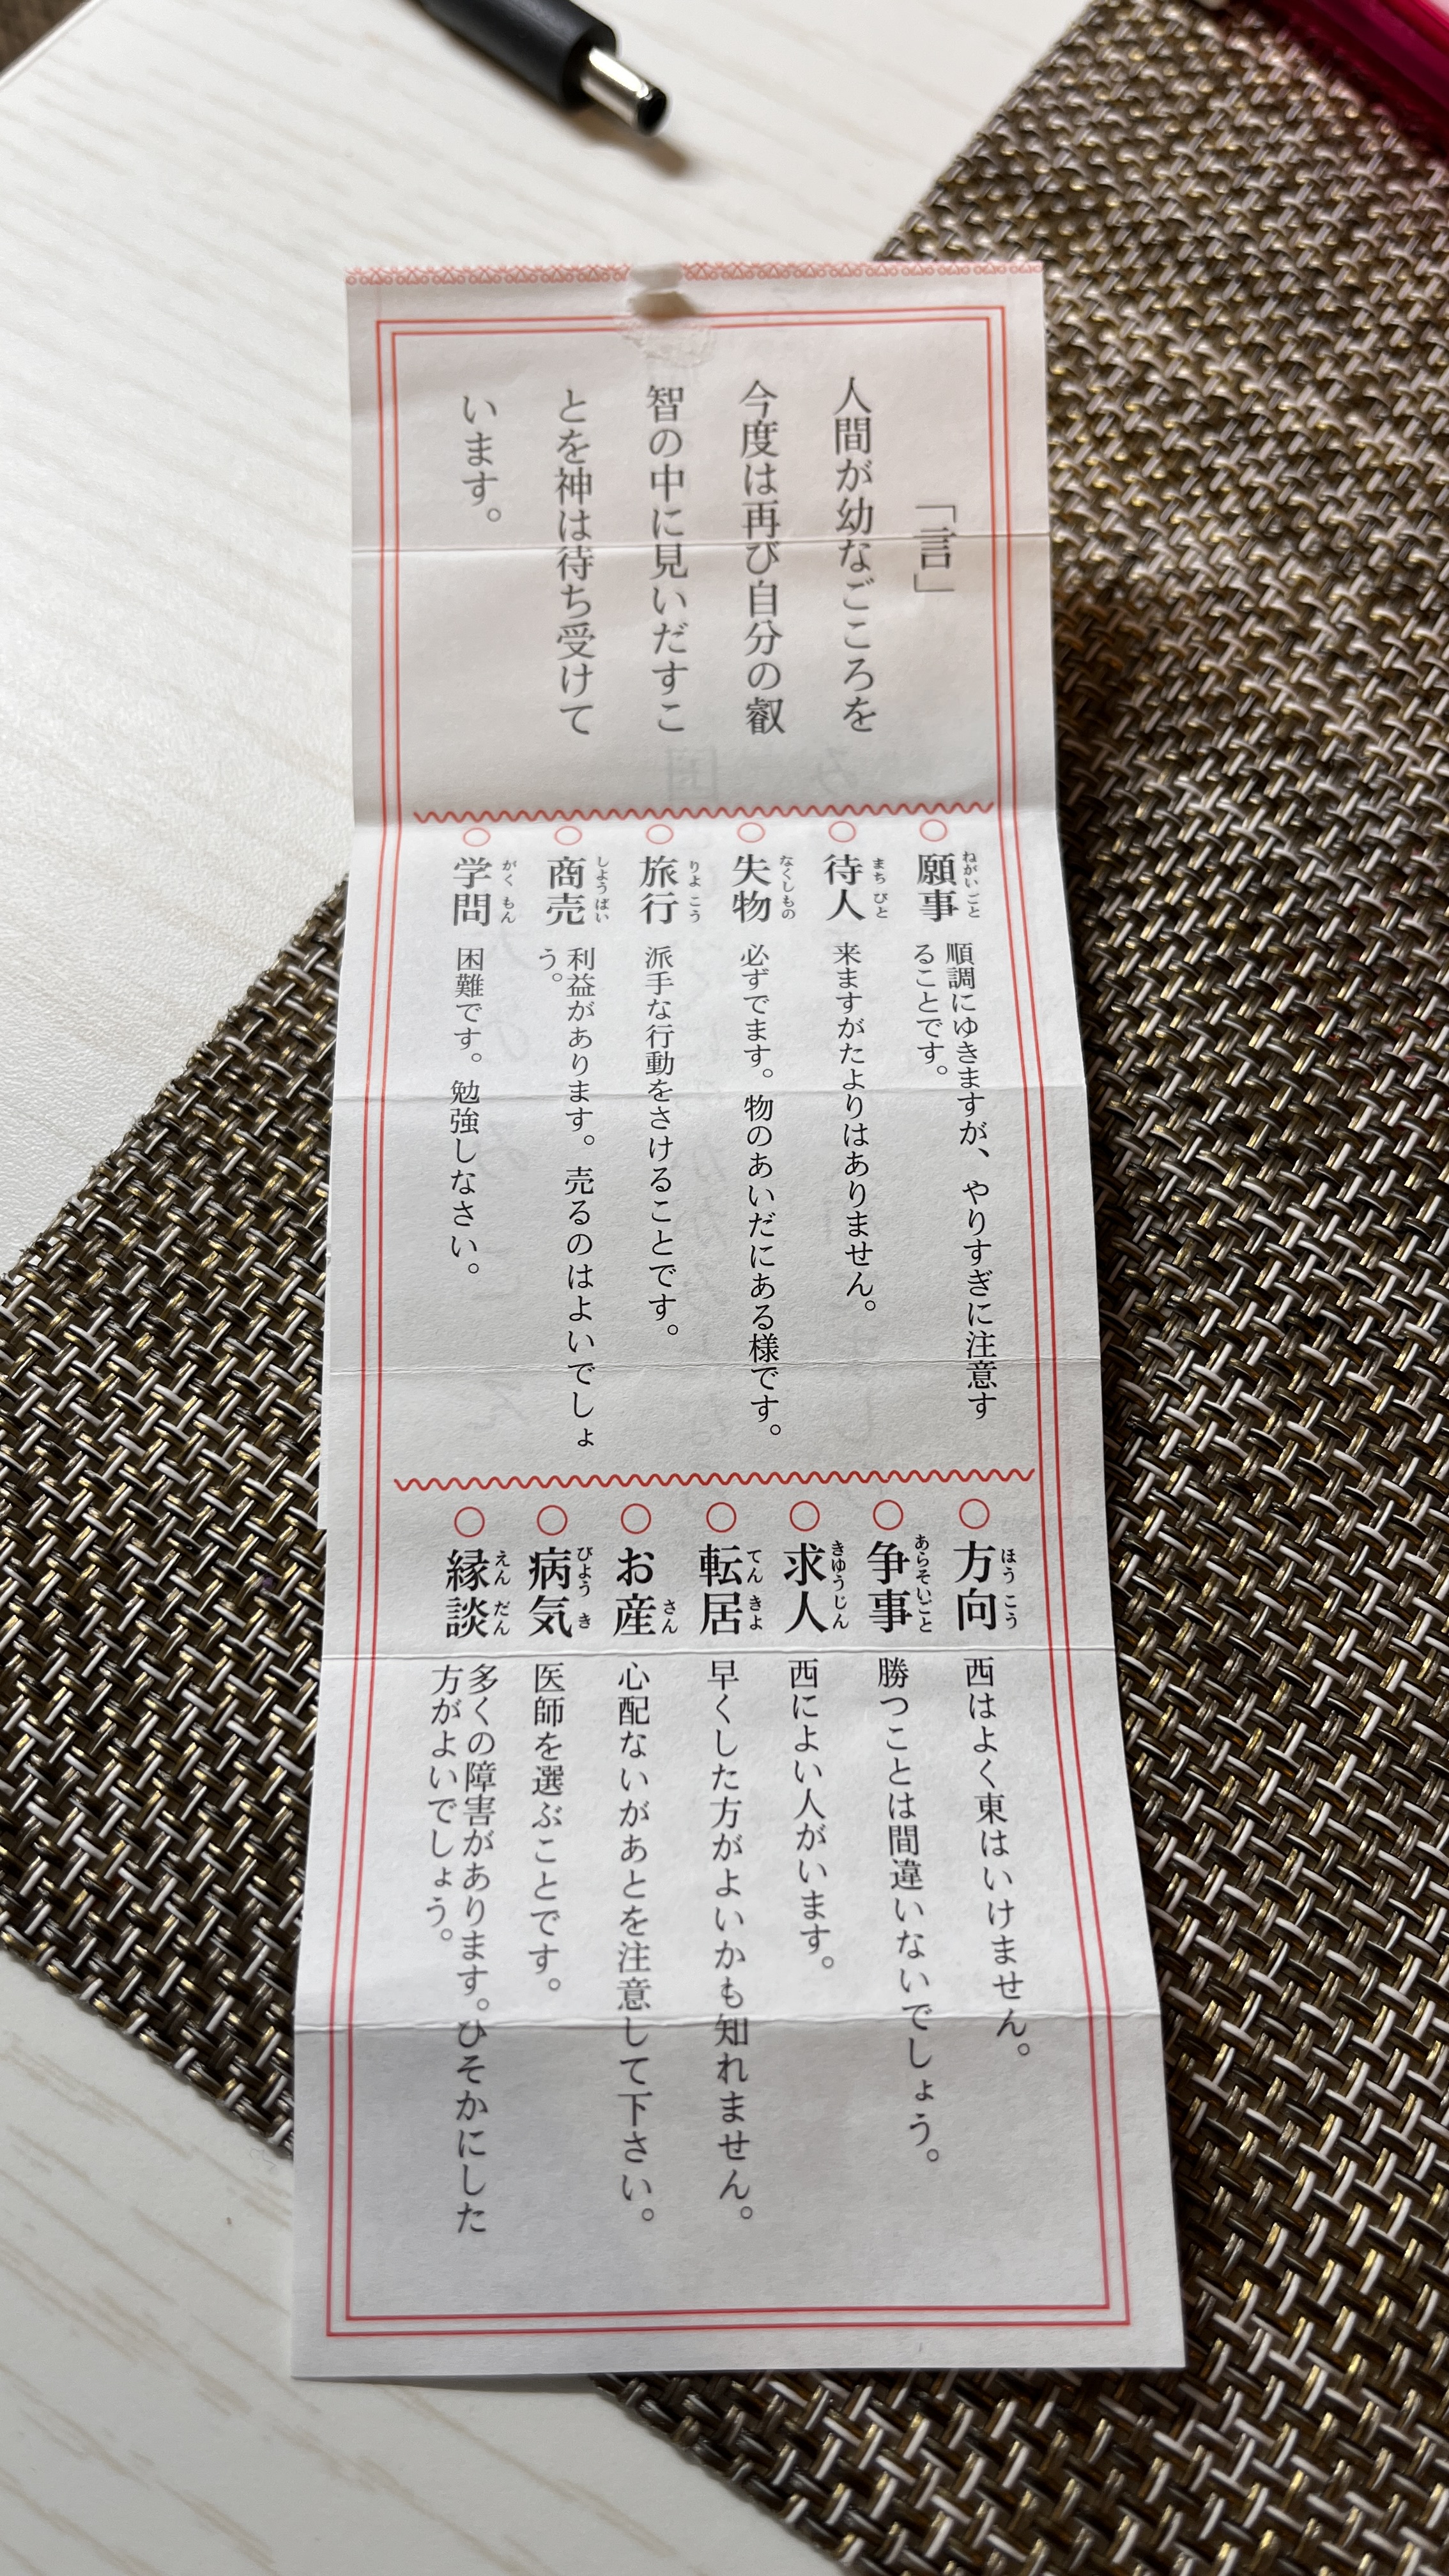 「言」
人間が幼なごころを
今度は再び自分の叡
智の中に見いだすこ
とを神は待ち受けて
います。
○願事 ねがいごと 順調にゆきますが、やりすぎに注意す
ることです。
○待人 まちびと 来ますがたよりはありません。
○失物 なくしもの 必ずでます。物のあいだにある様です。
○旅行 りよこう 派手な行動をさけることです。
○商売 しようばい 利益があります。売るのはよいでしょ
う。
○学問 がくもん 困難です。勉強しなさい。
○方向 ほうこう 西はよく東はいけません。
○争事 あらそいごと 勝つことは間違いないでしょう。
○求人 きゆうじん 西によい人がいます。
○転居 てんきよ 早くした方がよいかも知れません。
○お産 さん 心配ないがあとを注意して下さい。
○病気 びようき 医師を選ぶことです。
○縁談 えんだん 多くの障害があります。ひそかにした
方がよいでしょう。